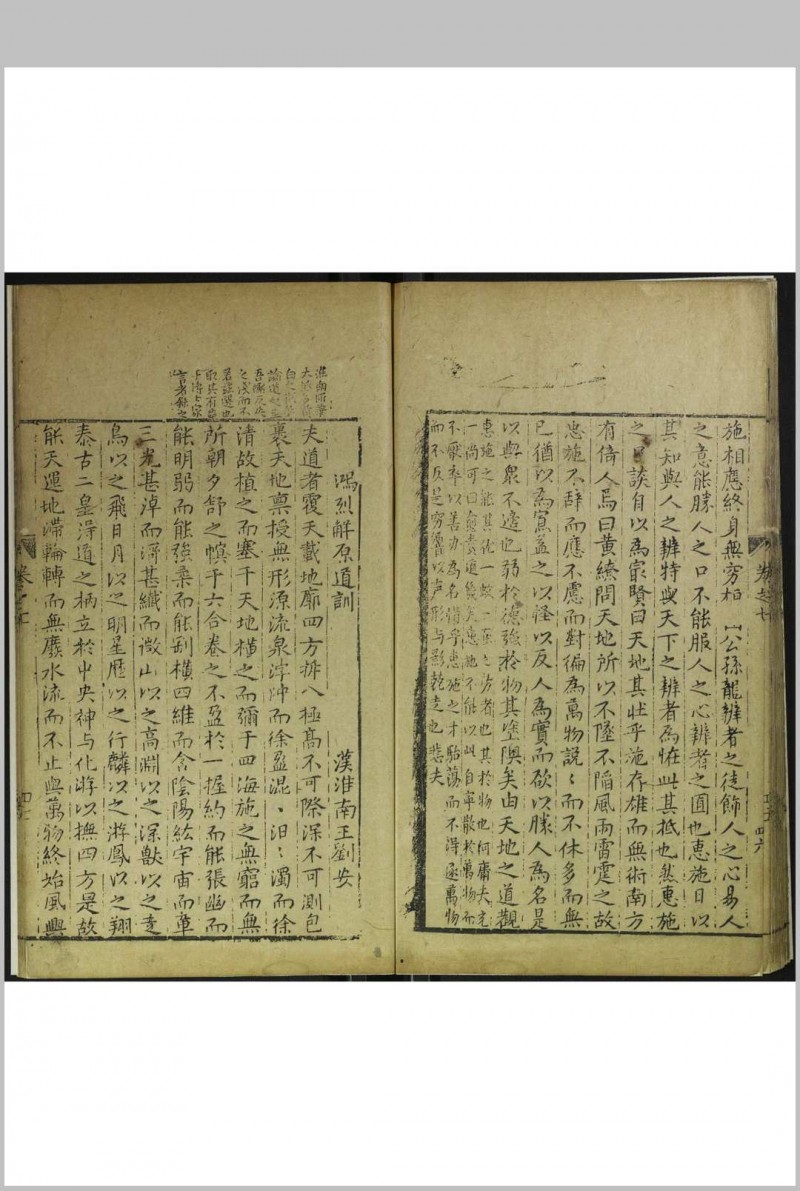 施相應終身無窮桓公孫龍辨者之徒飾人之心易人
之意能勝人之口不能服人之心辨者之囿也惠施日以
其知與人之辨特與天下之辨者為怪此其柢也然惠施
之口談自以為最賢曰天地其壯乎施存雄而無術南方
有倚人焉曰黃繚問天地所以不墜不陷風雨雷霆之故
惠施不辞而應不慮而對徧為萬物說〻而不休多而無
已猶以為寡益之以怪以反人為實而欲以勝人為名是
以與眾不適也弱於德強於物其塗隩矣由天地之道觀
惠施之能其犹一蚊一䖟之劳者也其於物也何庸夫充
一尚可曰愈貴道幾矣惠施不能以此自寧散於萬物而
不厭卒以善办為名惜乎惠施之才駘荡而不淂逐萬物
而不反是穷響以声形与影竞走也悲夫
卷之七
四六
言者録之
鴻烈解原道訓
漢淮南王劉安
夫道者覆天載地廓四方拆八極高不可際深不可測包
裹天地稟授無形源流泉浡冲而徐盈混〻汩〻濁而徐
清故植之而塞于天地横之而彌于四海施之無窮而無
所朝夕舒之幎于六合卷之不盈於一握約而能張幽而
能明弱而能強柔而能剛横四維而含陰陽紘宇宙而章
三光甚淖而滒甚纖而微山以之高淵以之深獸以之走
鳥以之飛日月以之明星歷以之行麟以之游鳳以之翔
泰古二皇淂道之柄立於中央神与化游以撫四方是故
能天運地滯輪轉而無廢水流而不止與萬物終始風興
卷之七
四七